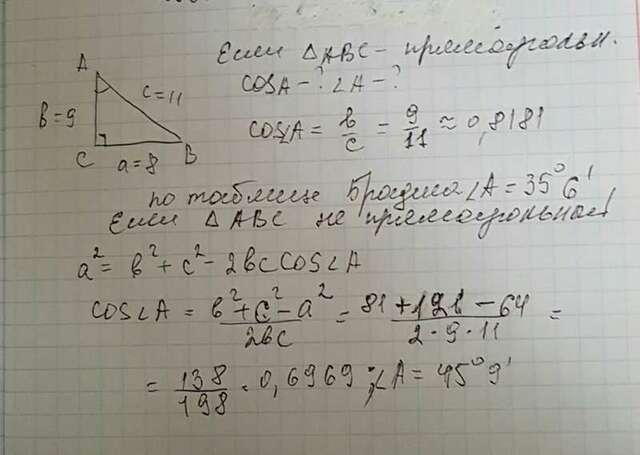 Если △ABC - прямоугольн.
cosA - ? ∠A - ?
A
c = 11
b = 9
C
a = 8
B
cos∠A = b/c = 9/11 ≈ 0,8181
по таблице Брадиса ∠A = 35°6'
Если △ABC не прямоугольный
a² = b² + c² - 2bc cos∠A
cos∠A = (b² + c² - a²)/(2bc) = (81 + 121 - 64)/(2·9·11) =
= 138/198 = 0,6969; ∠A = 45°9'